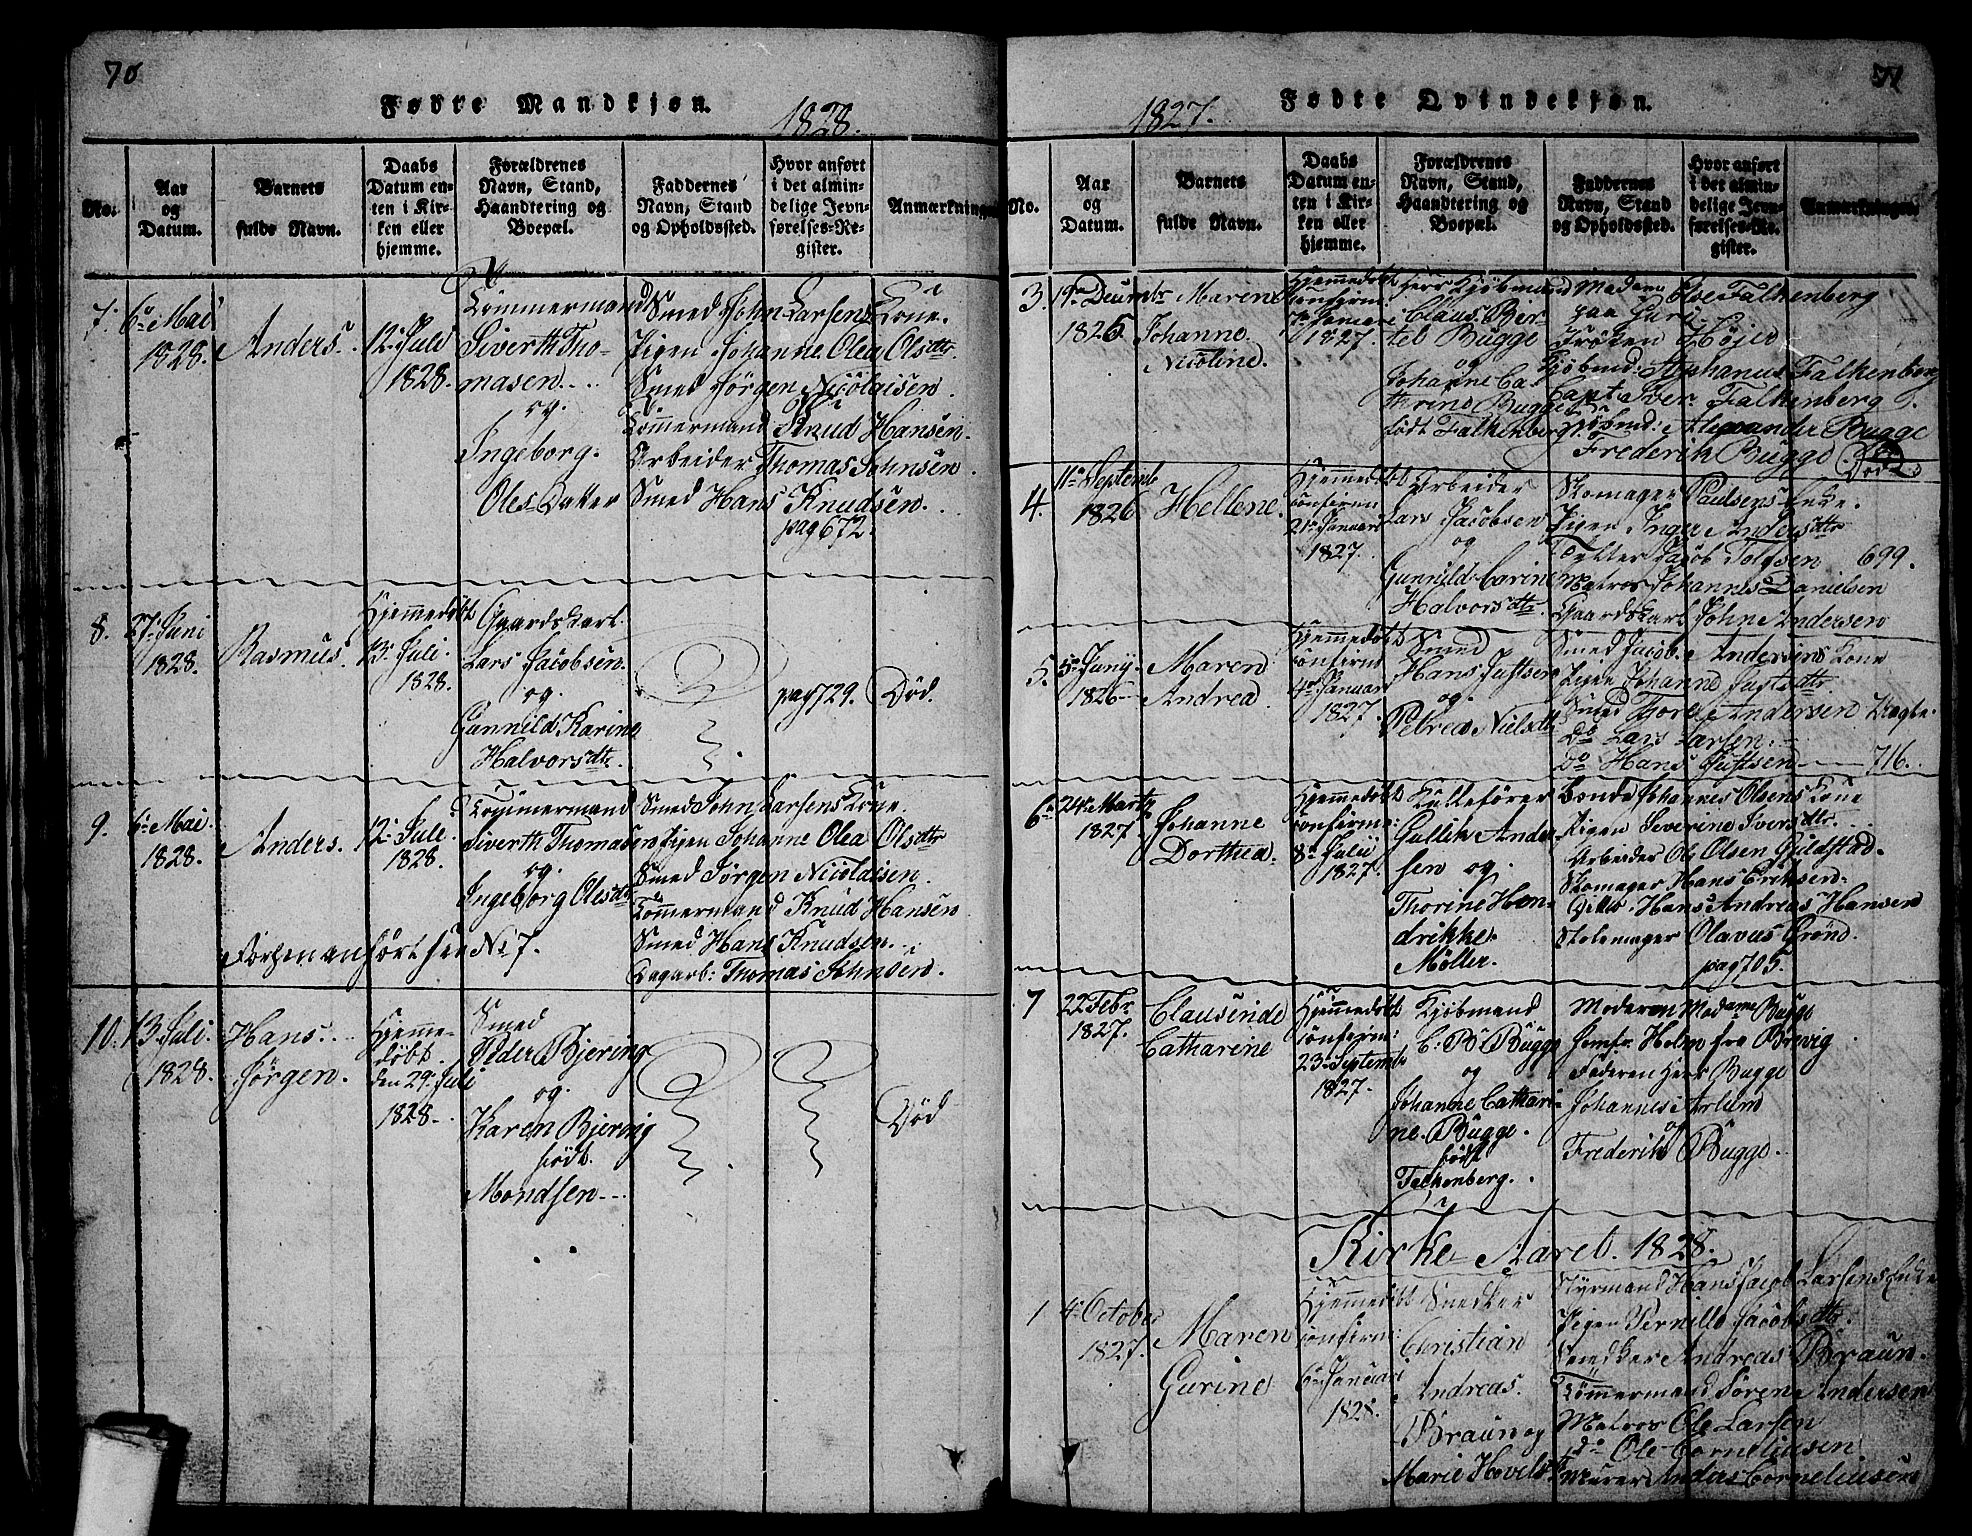 70
Fødte Mandkjøn.
1828.
No.
Aar og Datum.
Barnets fulde Navn.
Daabs Datum enten i Kirken eller hjemme.
Forældrenes Navn, Stand, Haandtering og Boepæl.
Faddernes Navn, Stand og Opholdssted.
Hvor anført i det almindelige Jevnførelses-Register.
Anmærkninger
7.
6te Mai
1828.
Anders.
12te Juli
1828.
Tømmermand
Siverth Tho-
masen.
og
Ingeborg
Oles Datter
Smed John Larsens Kone.
Pigen Johanne Olea Olsdtr
Smed Jørgen Nicolaisen
Tømmermand Knud Hansen.
Arbeider Thomas Johnsen
Smed Hans Knudsen.
pag 672.
8.
27. Juni
1828.
Rasmus.
Hjemmedøbt
13. Juli
1828.
Gaardskarl
Lars Jacobsen
og
Gunnild Karine
Halvorsdtr
pag 729.
Død.
9.
6te Mai
1828.
Anders.
12te Juli
1828.
Tømmermand
Siverth Thomasen
og
Ingeborg Olesdtr
Smed John Larsens Kone.
Pigen Johanne Olea Olsdtr
Smed Jørgen Nicolaisen.
Tømmermand Knud Hansen
Smed Hans Knudsen.
Dagarb: Thomas Johnsen.
No 7.
10.
13. Juli
1828.
Hans
Jørgen.
Hjemme-
døbt
den 29. Juli
1828.
Smed
Peder Bjering
og
Karen Bjering
født
Mondsen
Død
71
Fødte Qvindekjøn.
1827.
No.
Aar og Datum.
Barnets fulde Navn.
Daabs Datum enten i Kirken eller hjemme.
Forældrenes Navn, Stand, Haandtering og Boepæl.
Faddernes Navn, Stand og Opholdssted.
Hvor anført i det almindelige Jevnførelses-Register.
Anmærkninger.
3.
19de
1825
Maren
Johanne
Nicoline.
Hjemmedøbt
confirm:
Januari
1827.
Herr Kjøbmand
Claus Bier-
tel Bugge
og
Johanne Ca-
thrine Bugge
født Falkenberg
Madam Else Falkenberg
Frøken Højer
Kjøbmd: Stephanus Falkenberg
Capt. Iver Falkenberg
Kjøbmd: Alexander Bugge
Frederik Bugge
Død
4.
11te Septemb
1826
Hellene.
Hjemmedøbt
confirm:
21de Januari
1827.
Arbeider
Lars Jacobsen
og
Gunnild Carine
Halvorsdtr
Skomager Paulsens Enke.
Pigen Inger Andersdtr
Jacob Tollefsen
Matros Johannes Danielsen
Gaardskarl John Andersen
699.
5.
5te Junij
1826
Maren
Andrea.
Hjemmedøbt
confirm:
Januar
1827.
Smed
Hans Justsen
og
Petrea Nielsdtr
Smed Jacob Andersens Kone
Pigen Johanne Justsdtr
Smed Tore Andersen
Do Lars Larsen.
Do Hans Justsen
716.
6.
24de Martz
1827
Johanne
Dorthea.
Hjemmedøbt
confirm:
8de Julii
1827.
Gullik Ander-
sen og
Thorine Hen-
drikke
Møller.
Bonde Johannes Olsens Kone
Pigen Severine Iversdtr
Arbeider Ole Olsen Guldstad
Skomager Hans Eriksen
Ditto Hans Andreas Hansen
Stolemager Olavus Grønd.
pag 705.
7
22 Febr
1827.
Clausinde
Catharine
Hjemmedøbt
confirm:
23de Septemb
1827.
Kjøbmand
C: B: Bugge
og
Johanne Cathari-
ne Bugge.
født
Falkenberg.
Moderen Madame Bugge
Jomfr: Holm fra Brevig
Faderen Herr Bugge
Johannes Arlund
og
Frederik Bugge.
Kirke Aaret 1828.
1
4de October
1827.
Maren
Gurine
Hjemmedøbt
confirm:
6te Januari
1828.
Snedker
Christian
Andreas
Braun og
Marie Hovels
Styrmand Hans Jacob Larsens Enke
Pigen Pernille Jacobsdtr.
Snedker Andreas Braun.
Tømmermand Søren Andersen
Matros Ole Larsen
do Ole Corneliusen
Murer Anders Corneliusen